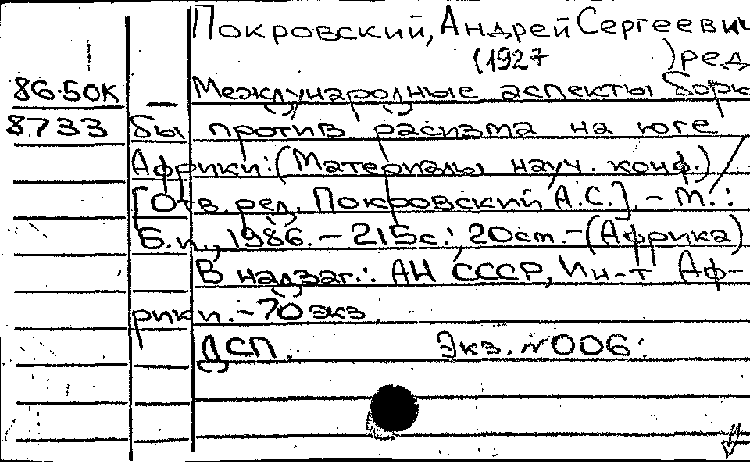 Покровский, Андрей Сергеевич
(1927 ) ред
86-50К Международные аспекты борь
8733 бы против расизма на юге
Африки: (Материалы науч. конф.) /
[Отв. ред. Покровский А.С.]. - М.:
Б.и., 1986. - 215с.; 20см. - (Африка)
В надзаг.: АН СССР, Ин-т Аф-
рики. - 70 экз.
ДСП. Экз. №006.